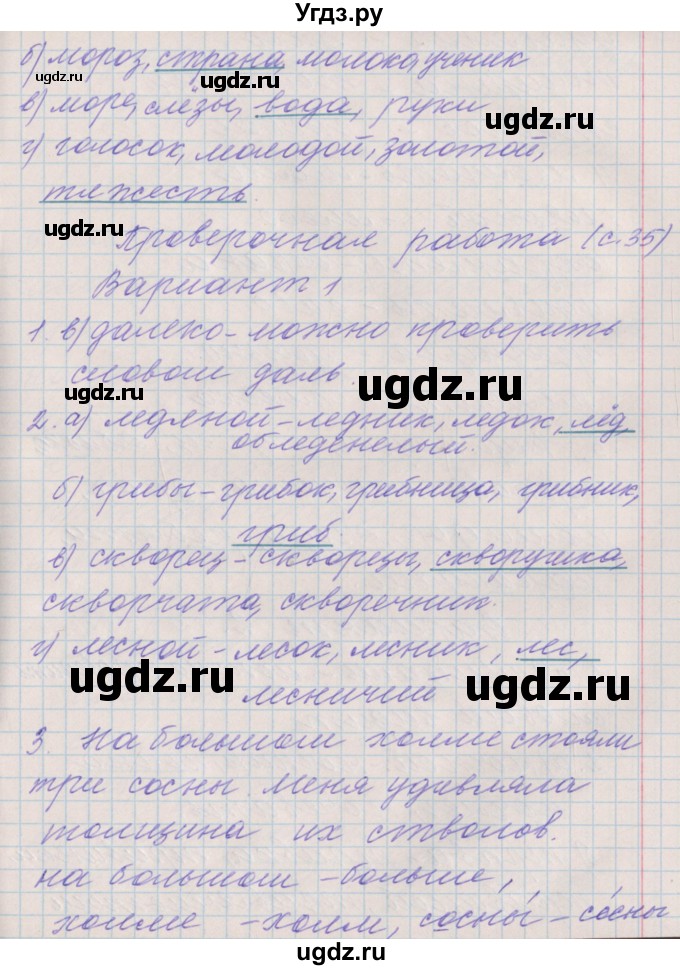 Угдз.ру
б) мороз, страна, молоко, ученик
ugdz.ru
в) море, слёзы, вода, руки
ugdz.ru
г) голосок, молодой, золотой,
тяжесть.
ugdz.ru
Проверочная работа (с.35)
Вариант 1
1. в) далеко - можно проверить
словом даль.
ugdz.ru
ugdz.ru
2. а) ледяной - ледник, ледок, лёд,
обледенелый.
б) грибы - грибок, грибница, грибник,
гриб.
в) скворец - скворецы, скворушка,
скворчата, скворечник.
г) лесной - лесок, лесник, лес,
ugdz.ru
ugdz.ru
лесничий
3. На большом холме стояли
три сосны. Меня удивляла
толщина их стволов.
на большом - больше,
холме - холм, сосны́ - со́сны
ugdz.ru
ugdz.ru